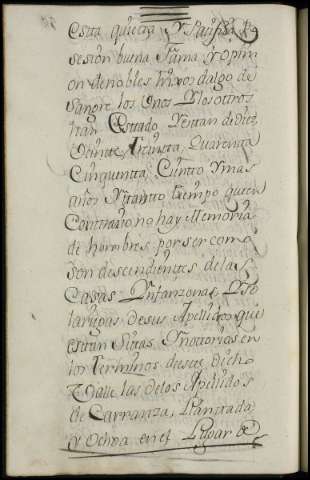 esta quieta Y Pasifica Po
sesion buena Fama, Y opini
on de nobles hijos dalgo de
sangre los Unos Y los otros
han Estado, Y estan de Diez
Veinte, Treinta, Quarenta
Cinquenta, Ciento Y mas
años Y tanto tiempo que en
Contrario no hay Memoria
de hombres, por ser como
son descendientes de las
Casas Ynfanzonas,
lariegas de sus Apellidos que
estan Sitas, Y notorias en
los Terminos de este dicho
Valle, las de los Apellidos
de Carranza, Llantada
Y Ochoa en el Lugar de